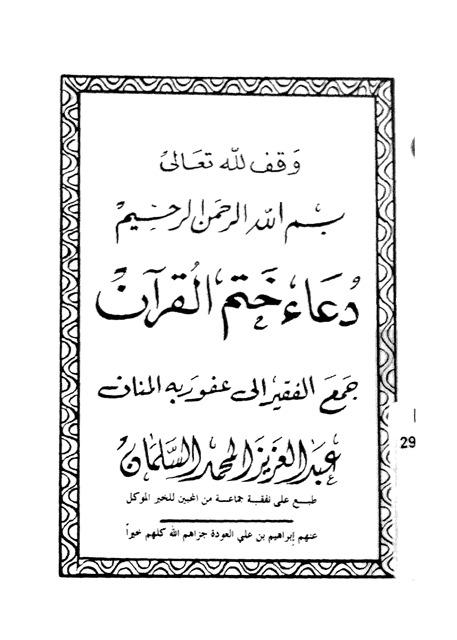 وَقف لله تعَالى
بسم الله الرحمن الرحيم
دُعَاء خَتم القُرآن
جمَعَ الفقير إلى عفو ربه المنان
عبد العزيز المحمد السلمان
طبع على نفقة جماعة من المحبين للخير الموكل
عنهم إبراهيم بن علي العودة جزاهم الله كلهم خيراً
29